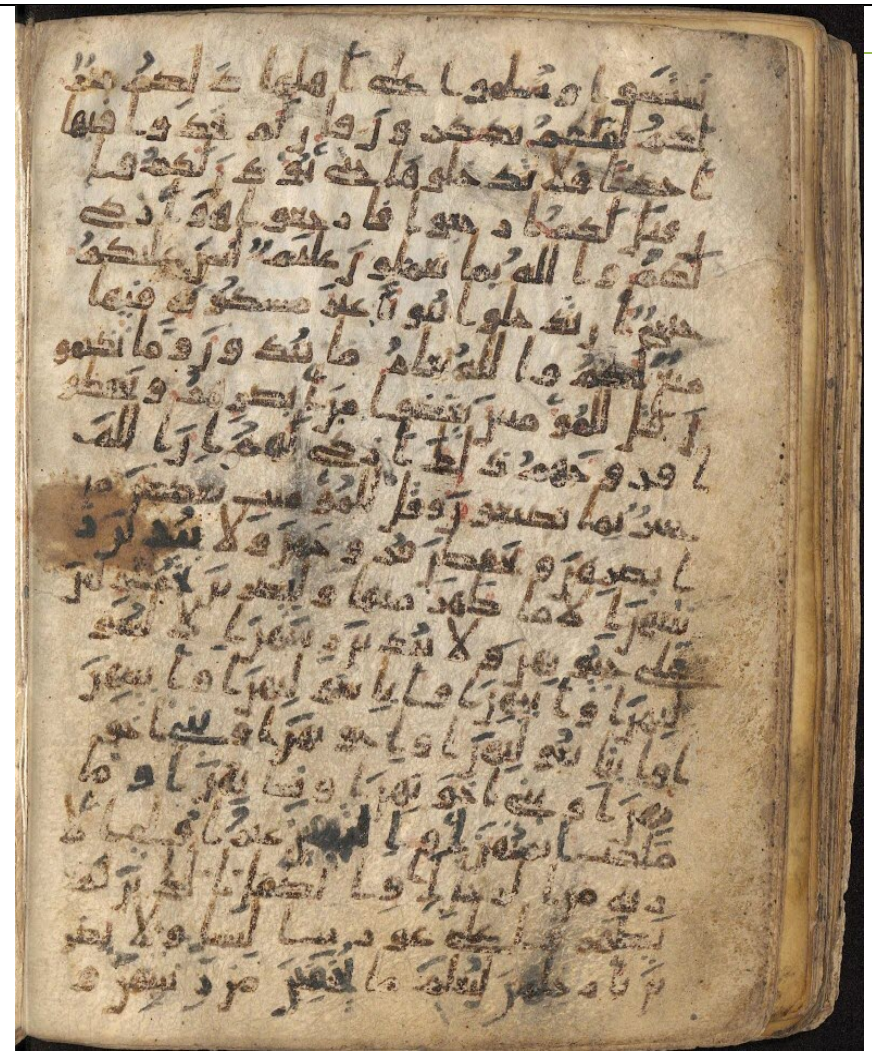 تستنسوا وتسلموا على اهلها ذلكم خير
لكم لعلكم تذكرون فان لم تجدوا فيها
احدا فلا تدخلوها حتى يؤذن لكم وا
ن قيل لكم ارجعوا فارجعوا هو ازكى
لكم والله بما تعملون عليم ليس عليكم
جناح ان تدخلوا بيوتا غير مسكونة فيها
متع لكم والله يعلم ما تبدون وما تكتمو
ن قل للمؤمنين يغضوا من ابصرهم ويحفظو
ا فروجهم ذلك ازكى لهم ان الله
خبير بما يصنعون وقل للمؤمنت يغضضن من
ابصرهن ويحفظن فروجهن ولا يبدين ز
ينتهن الا ما ظهر منها وليضربن بخمرهن
على جيوبهن ولا يبدين زينتهن الا لبعو
لتهن او ابائهن او ابا بعولتهن او ابنائهن
او ابنا بعولتهن او اخونهن او بنى اخو
نهن او بنى اخوتهن او نسائهن او ما
ملكت ايمنهن او التبعين غير اولى الا
ربة من الرجال او الطفل الذين لم
يظهروا على عورت النسا ولا يضر
بن بارجلهن ليعلم ما يخفين من زينتهن و